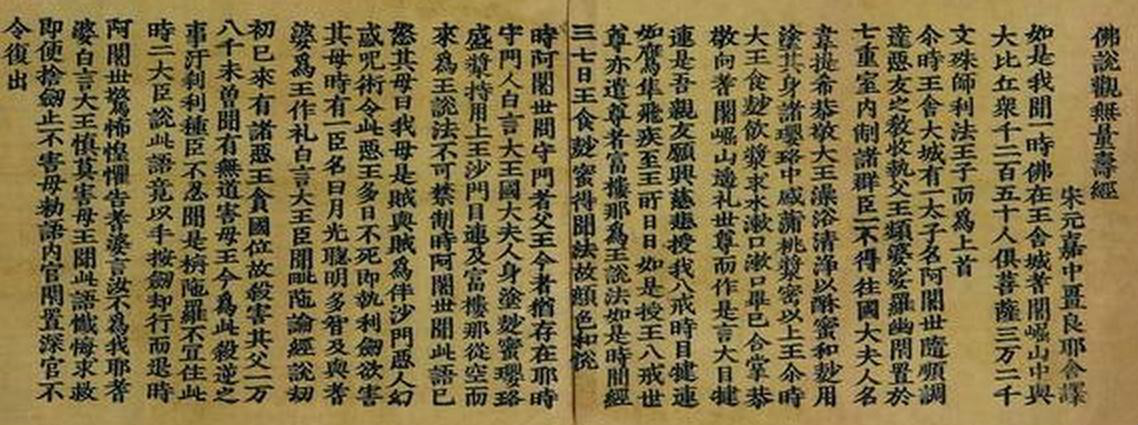 佛說觀無量壽經
宋元嘉中畺良耶舍譯
如是我聞一時佛在王舍城耆闍崛山中與
大比丘衆千二百五十人俱菩薩三万二千
文殊師利法王子而爲上首
尒時王舍大城有一太子名阿闍世隨順調
達惡友之教收執父王頻婆娑羅幽閇置於
七重室內制諸群臣一不得往國大夫人名
韋提希恭敬大王澡浴清淨以酥蜜和麨用
塗其身諸瓔珞中盛蒲桃漿密以上王尒時
大王食麨飲漿求水漱口漱口畢已合掌恭
敬向耆闍崛山遙礼世尊而作是言大目揵
連是吾親友願興慈悲授我八戒時目揵連
如鷹隼飛疾至王所日日如是授王八戒世
尊亦遣尊者富樓那爲王說法如是時閒經
三七日王食麨蜜得聞法故顏色和悅
時阿闍世問守門者父王今者猶存在耶時
守門人白言大王國大夫人身塗麨蜜瓔珞
盛漿持用上王沙門目連及富樓那從空而
來爲王說法不可禁制時阿闍世聞此語已
怒其母曰我母是賊與賊爲伴沙門惡人幻
或呪術令此惡王多日不死即執利劒欲害
其母時有一臣名曰月光聰明多智及與耆
婆爲王作礼白言大王臣聞毗陁論經說劫
初已來有諸惡王貪國位故殺害其父一万
八千未曾聞有無道害母王今爲此殺逆之
事汙刹利種臣不忍聞是栴陁羅不宜住此
時二大臣說此語竟以手按劒却行而退時
阿闍世驚怖惶懼告耆婆言汝不爲我耶耆
婆白言大王慎莫害母王聞此語懺悔求救
即便捨劒止不害母勑語內官閇置深宮不
令復出